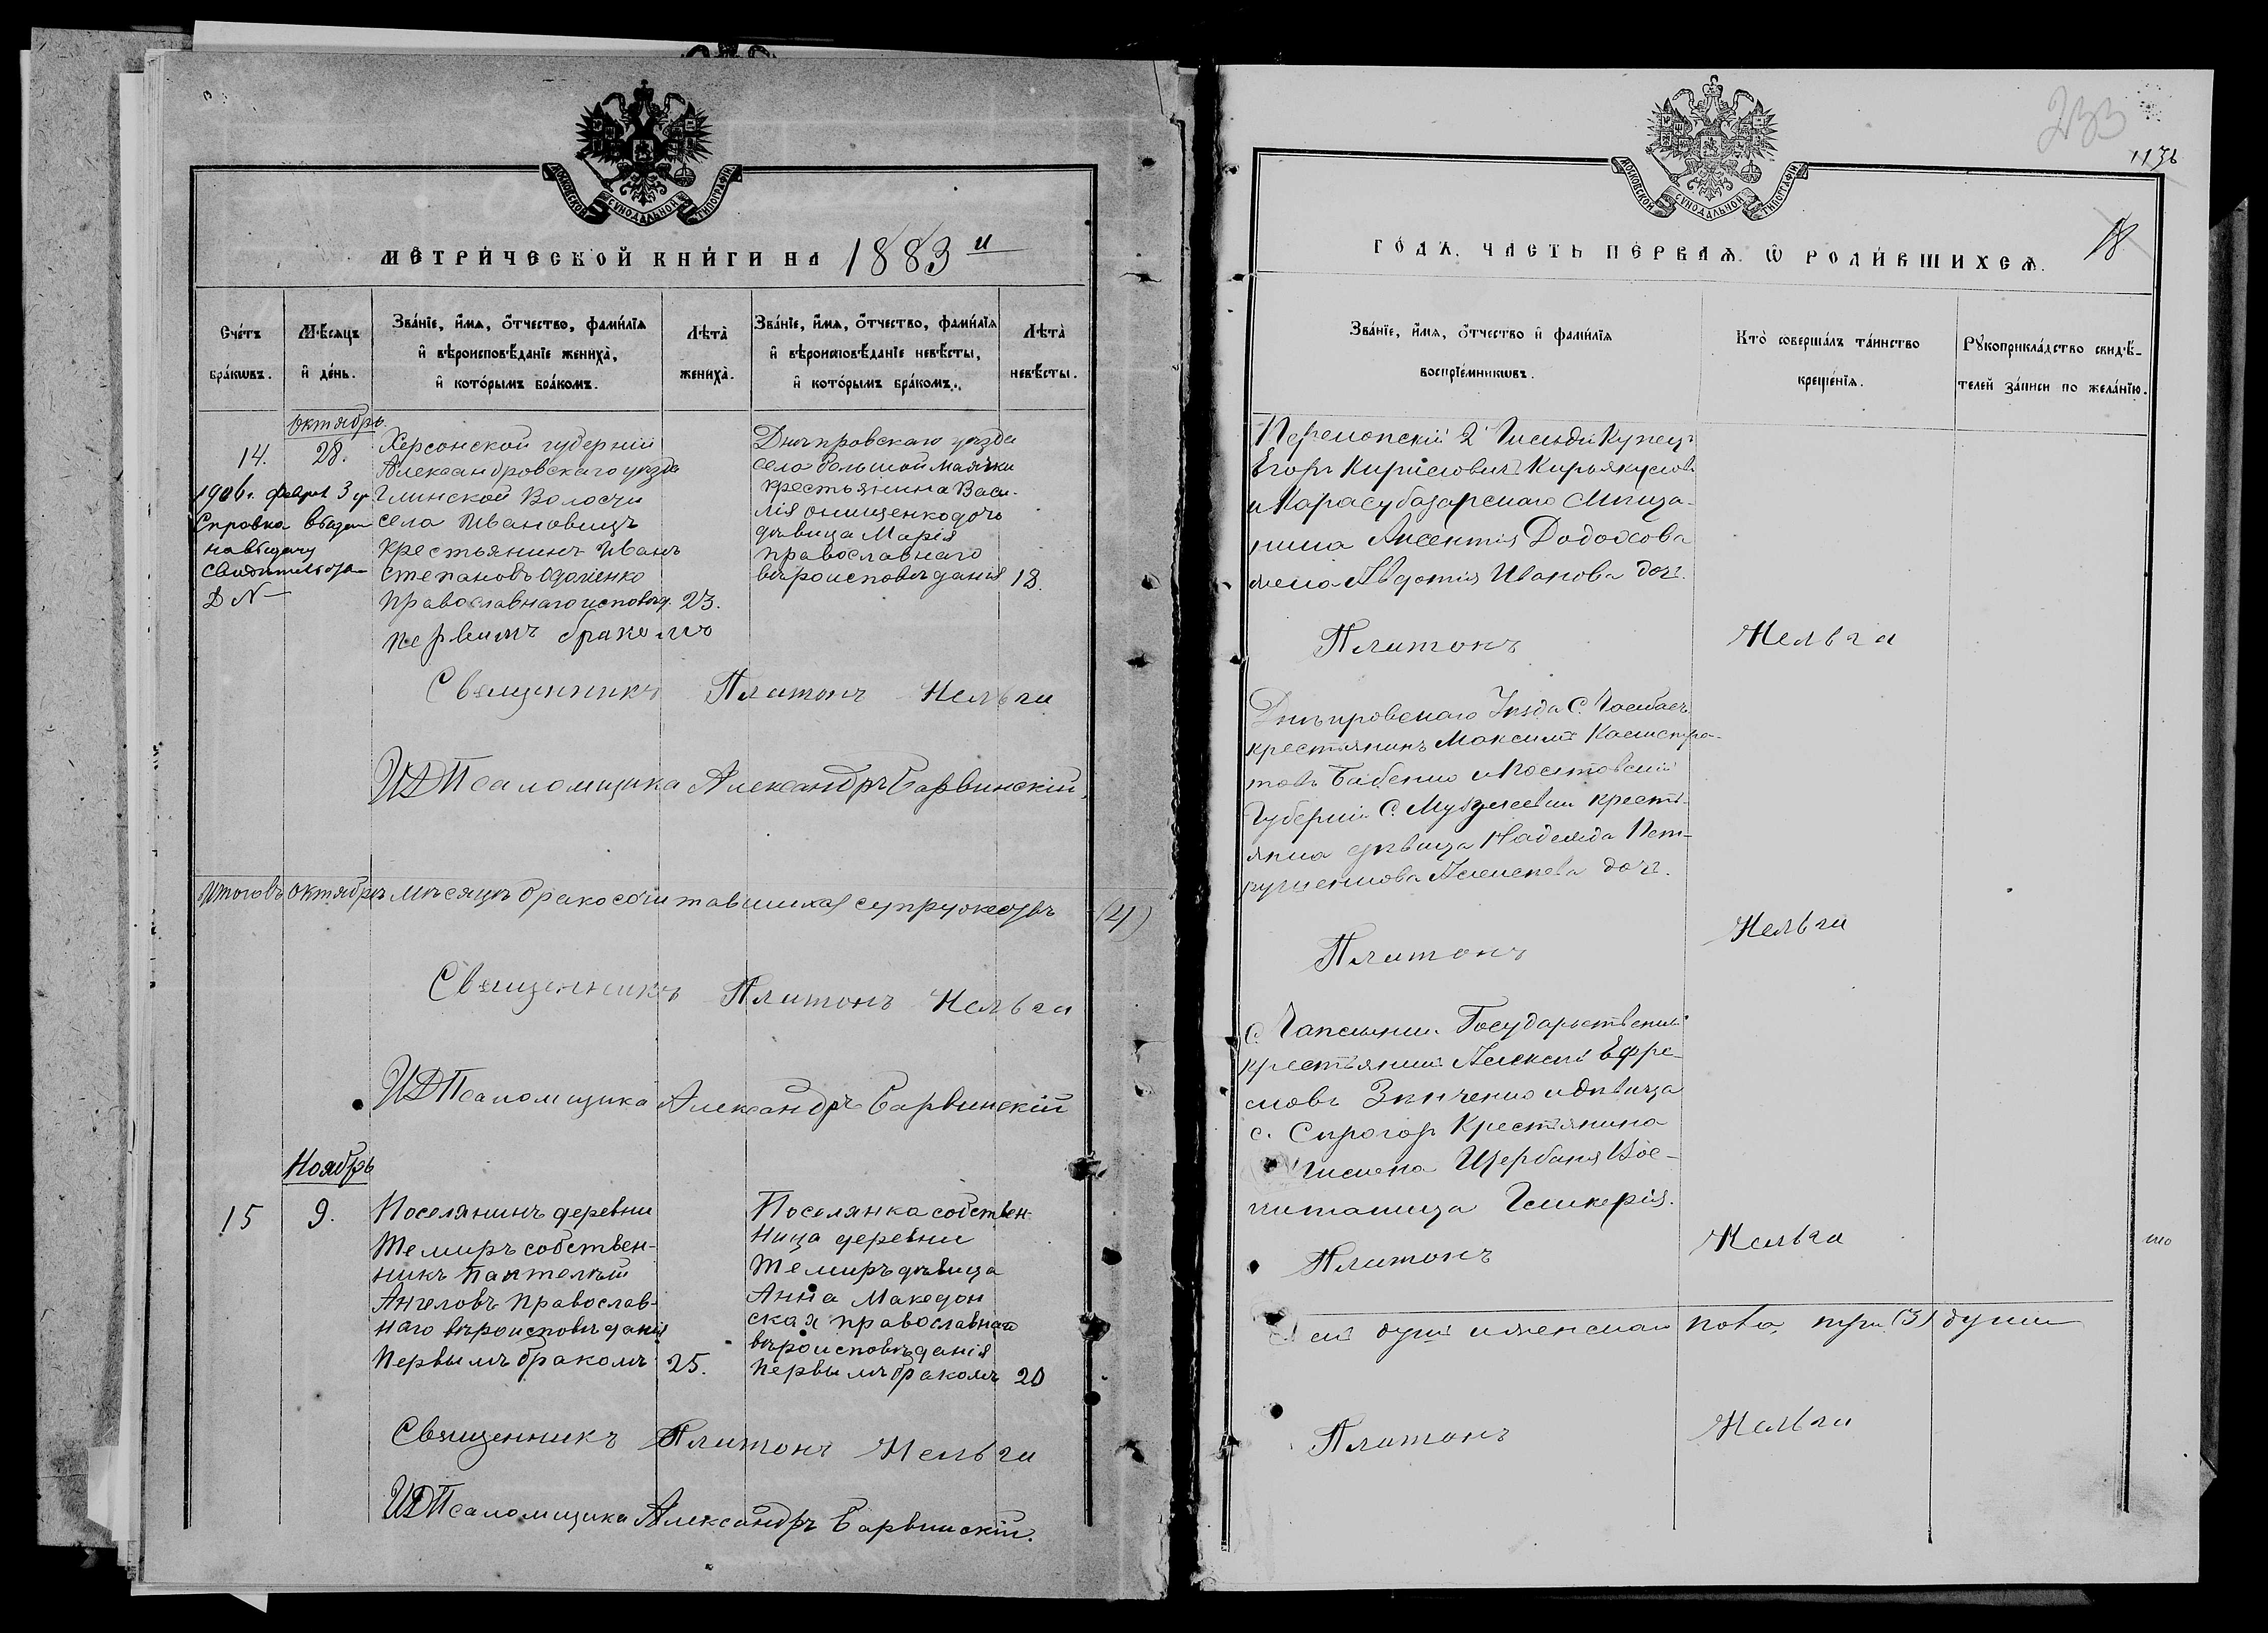 МОСКОВСКОЙ СѴНОДАЛЬНОЙ ТИПОГРАФІИ
МЕТРИ́ЧЕСКОЙ КНИ́ГИ НА 1883 й
Сче́тъ бра́кѡвъ.
Мѣ́сяцъ и҆ де́нь.
Зва́нїе, и҆́мѧ, ѻ҆́тчество, фами́лїѧ
и҆ вѣроисповѣ́данїе жениха̀,
и҆ кото́рымъ бра́комъ.
Лѣта̀ жениха̀.
Зва́нїе, и҆́мѧ, ѻ҆́тчество, фами́лїѧ
и҆ вѣроисповѣ́данїе невѣ́сты,
и҆ кото́рымъ бра́комъ.
Лѣта̀ невѣ́сты.
Октябрь.
14.
28.
1906 г. февраля 3 д.
Справка выдан
на выдачу
Свидетельства
Д №
Херсонской губерніи
Александровскаго уезда
Глинской Волости
села Ивановицъ
крестьянинъ Иванъ
Степановъ
православнаго исповед. 23.
первымъ бракомъ
Днепровскаго уезда
села большой Маячки
крестьянина Васи-
лія онищенко дочь
девица Марія
православнаго
вероисповеданія 18.
Священникъ Платонъ Нельга
ИД Псаломщика Александръ Барвинскій.
Итого въ октябре месяце бракосочитавшихся супружествъ (4)
Священникъ Платонъ Нельга
ИД Псаломщика Александръ Барвинскій
Ноябрь
15
9.
Поселянинъ деревни
Темиръ собствен-
никъ Пантелей
Ангеловъ православ-
наго вероисповеданія
первымъ бракомъ 25.
Поселянка собствен-
ница деревни
Темиръ девица
Анна Македон
ская православнаго
вероисповеданія
первымъ бракомъ 20
Священникъ Платонъ Нельга
ИД Псаломщика Александръ Барвинскій.
233
МОСКОВСКОЙ СѴНОДАЛЬНОЙ ТИПОГРАФІИ
18
ГО́ДА. ЧА́СТЬ ПЕ́РВАѦ. Ѽ РОДИ́ВШИХСѦ.
Зва́нїе, и҆́мѧ, ѻ҆́тчество и҆ фами́лїѧ
воспрїе́мникѡвъ.
Кто̀ соверша́лъ та́инство
креще́нїѧ.
Рꙋкоприкла́дство свидѣ́-
телей за́писи по жела́нїю.
Перекопскій 2 Гильдіи Купецъ
Егоръ Кириловичъ
и Карасубазарскаго Мещани-
нина
жена Авдотія Иванова доч.
Платонъ Нельга
Днепровскаго Уезда С.
крестьянинъ Максимъ Калистра-
товъ Бабенко и
Губерніи С. крестья-
янка девица Надежда Пет-
Алексеева доч.
Платонъ Нельга
С. Чаплынки Государственый
крестьянинъ Алексей Ефре-
мовъ Зинченко и девица
с. Сирогоз крестьянина
Щербаня Вос-
питаница Гликерія.
Платонъ Нельга
пола, три (3) души
Платонъ Нельга